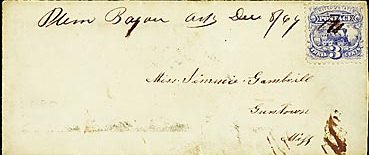 Plum Bayou Ark Dec 8/69
POSTAGE
3
Miss Jimmie Gambrill
Guntown
Miss